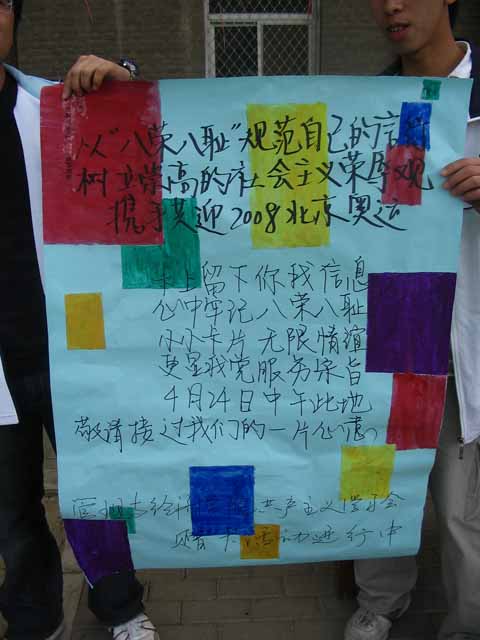 以"八荣八耻"规范自己的言行
树立崇高的社会主义荣辱观
携手共迎2008北京奥运
卡上留下你我信息
心中牢记八荣八耻
小小卡片无限情谊
更是我党服务宗旨
4月24日中午此地
敬请接过我们的一片心意
共产主义学习会
赠卡活动进行中